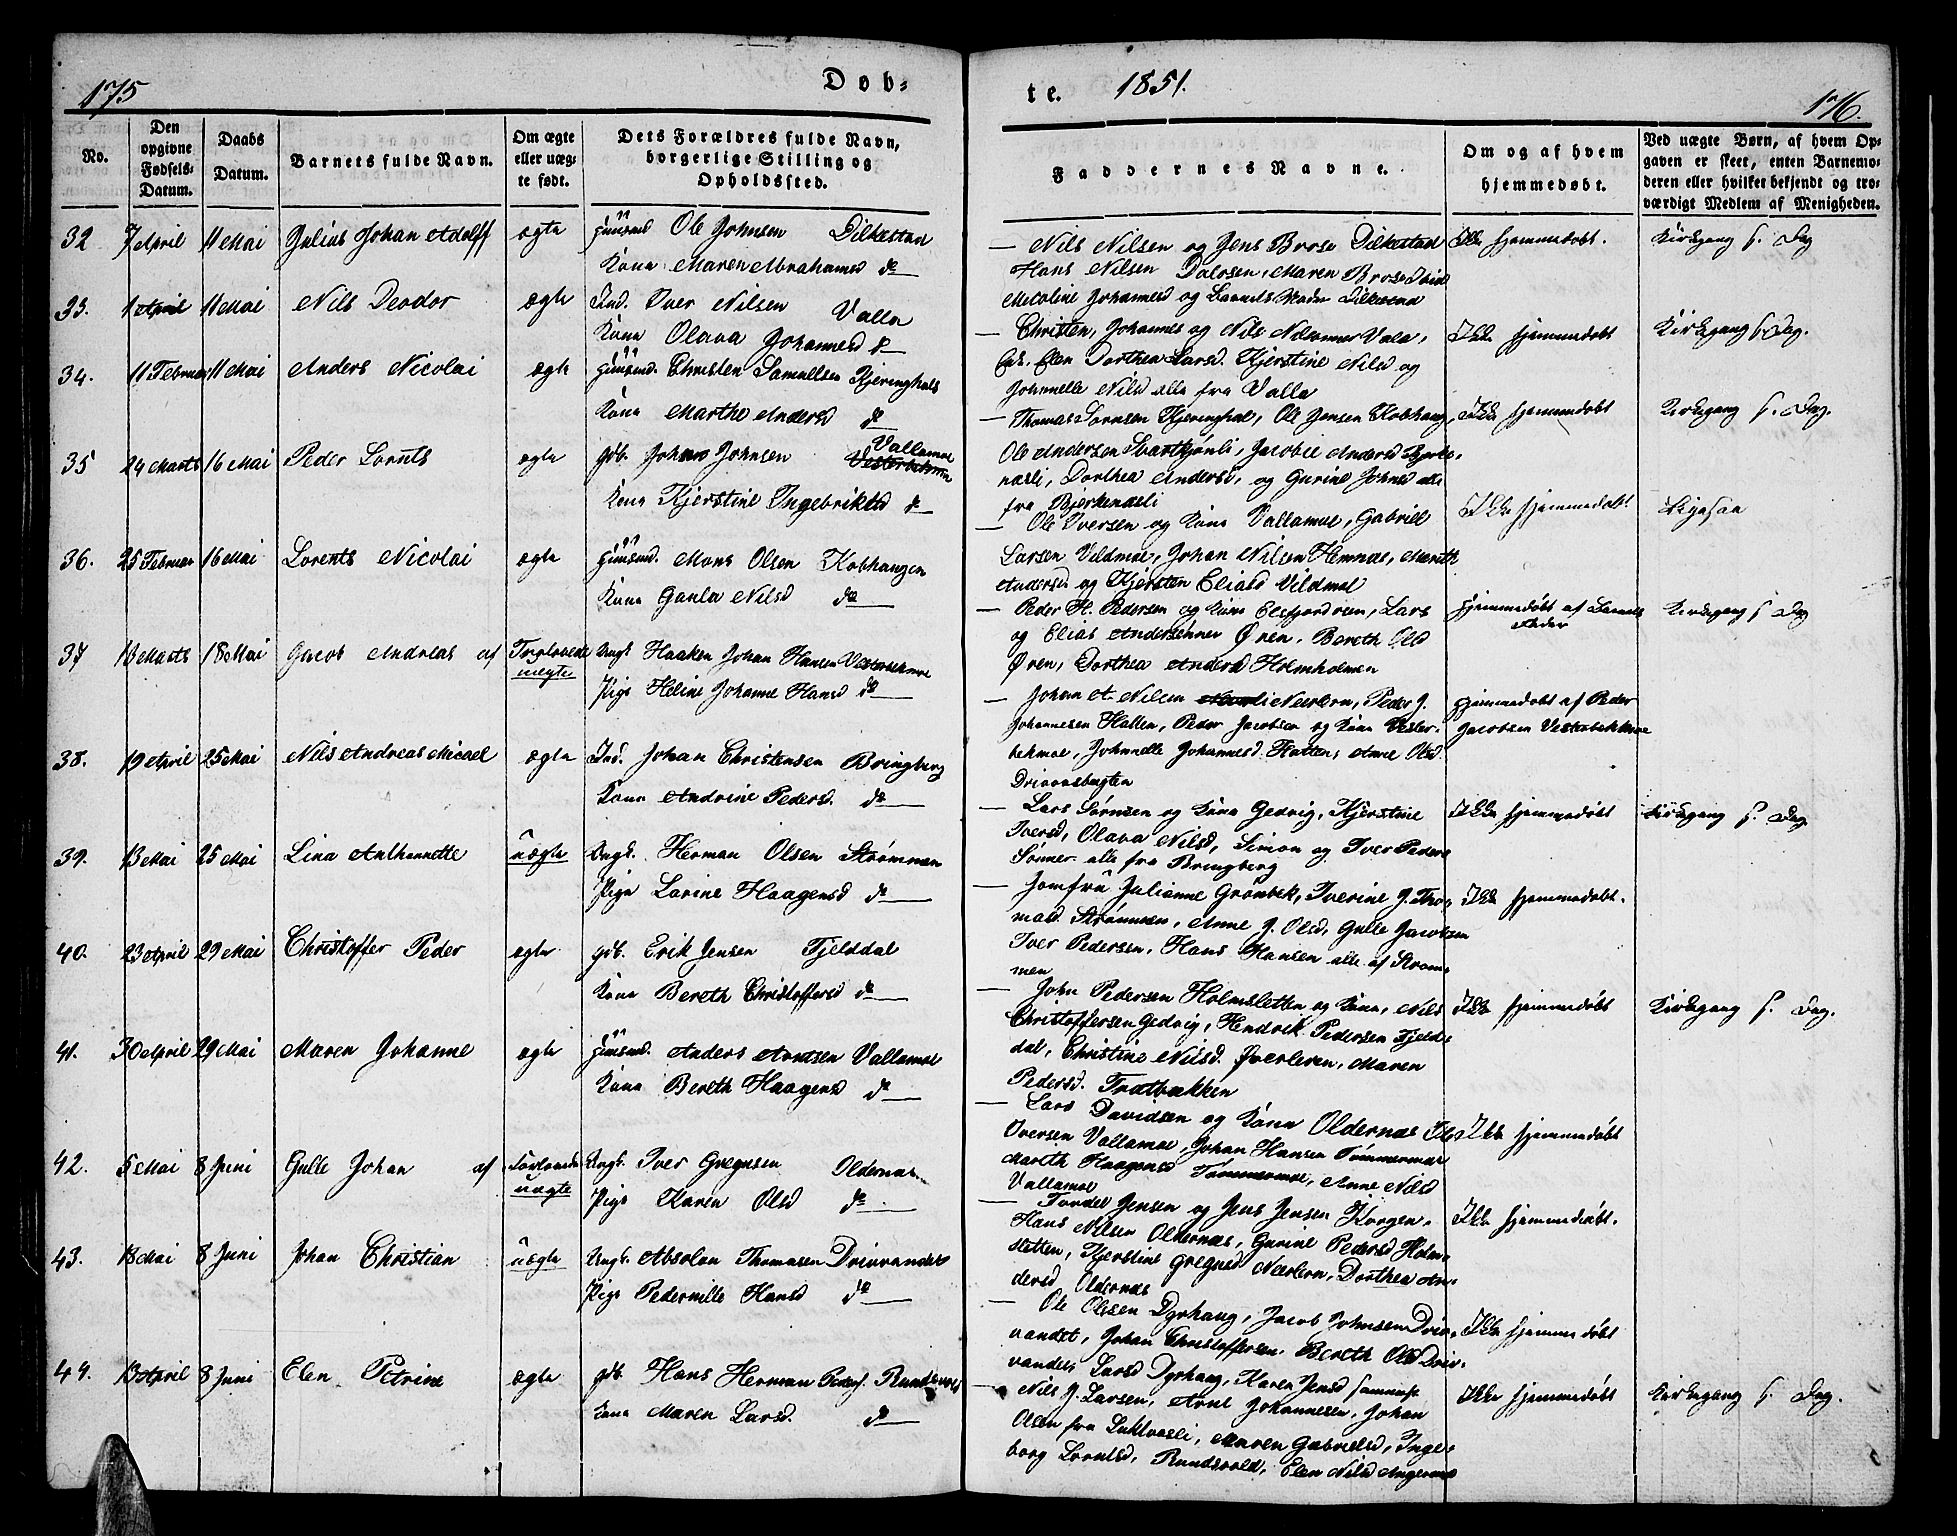 175
Døb-
No.
Den
opgivne
Fødsels-
Datum.
Daabs
Datum.
Barnets fulde Navn.
Om ægte
eller uæg-
te født.
Dets Forældres fulde Navn,
borgerlige Stilling og
Opholdssted.
32 7 April 11 Mai Julius Johan Adolff ægte Huusmd Ole Johnsen Dilkestad
Kone Maren Abrahamsd do
33. 1 April 11 Mai Nils Deodor ægte Ind. Iver Nilsen Valla
Kone Olava Johannesd do
34. 11 Februar 11 Mai Anders Nicolai ægte Huusmd. Christen Samuelsen Kjeringhals
Kone Marthe Andersd do
35 24 Marts 16 Mai Peder Lornts ægte gdb. Johan Johnsen Vallamoe
Kone Kjerstine Ingebriktsd do
36. 25 Februar 16 Mai Lorents Nicolai ægte Huusmd. Mons Olsen Kobhaugen
Kone Gunla Nilsd do
37 13 Marts 18 Mai Jacob Andreas af Trolovede Ungk. Haaken Johan Hansen Vesterbekmoe
uægte Pige Heline Johanne Hansd do
38. 19 April 25 Mai Nils Andreas Micael ægte Ind. Johan Christensen Bringberg
Kone Andrine Pedersd. do
39. 13 Mai 25 Mai Lina Anthannette uægte Ungk. Herman Olsen Strømmen
Pige Lorine Haagensd do
40. 23 April 29 Mai Christoffer Peder ægte gdb. Erik Jensen Fjeldal
Kone Bereth Christoffersd do
41. 30 April 29 Mai Maren Johanne ægte Huusmd. Anders Arntsen Vallamoe
Kone Bereth Haagensd do
42. 5 Mai 8 Juni Gulle Johan af Forlovede Ungk. Iver Gregusen Oldernæs
uægte Pige Karen Olsd do
43. 13 Mai 8 Juni Johan Christian uægte Ungk. Absolon Thomasen Drivvandet
Pige Pedernille Hansd do
44. 13 April 8 Juni Elen Petrine ægte gdb. Hans Herman Peders. Rundsvold
Kone Maren Larsd. do
te. 1851.
176.
Faddernes Navne.
Om og af hvem
hjemmedøbt.
Ved uægte Børn, af hvem Op-
gaven er skeet, enten Barnemo-
deren eller hvilket bekjendt og tro-
værdigt Medlem af Menigheden.
— Nils Nilsen og Jens Brose Dilkestad Ikke hjemmedøbt. Kirkegang s. Dag
Hans Nilsen Dolosen, Maren Brose
Metoline Johannesd og Barnets Fader Dilkestad
— Christen, Johannes og Nils Valla, Ikke hjemmedøbt Kirkegang s. Dag.
Elen Dorthea Larsd. Kjerstine Nilsd og
Johnnelle Nilsd alle fra Valla
— Thomas Sørnsen Kjeringhal, Ole Jensen Kobhaug, Ikke hjemmedøbt Kirkegang s. Dag.
Ole Andersen Svartkjønli, Jacobie Andersd Bjerke-
næsli, Dorthea Andersd, og Gurine Johnsd alle
fra Bjerkenæsli
— Ole Iversen og Kone Vallamoe, Gabriel Ikke hjemmedøbt
Larsen Vildmoe, Johan Nilsen Hemnæs, Mareth
Andersd og Kjersten Eliasd Vildmoe
— Peder H. Pedersen og Kone Lars hjemmedøbt af Barnets Kirkegang s. Dag
og Elias Andersønner Øren, Bereth Olsd Fader
Øren, Dorthea Andersd Holmholmen
— Johan A. Nilsen Neerlern, Peder J. hjemmedøbt af Peder
Johannesen Hatten, Peder Jacobsen og Kone Vester- Jacobsen Vesterbekkmoe
bekmoe, Johnnelle Johannesd. Hatten, Anne Olsd.
Drivvasbugten
— Lars Sørnsen og Kone Gedvig, Kjerstine Ikke hjemmedøbt Kirkegang s. Dag
Iversd, Olava Nilsd, Simon og Iver Peders
Sønner alle fra Bringberg
— Jomfru Julianne Grønbek, Iverine J. Tho- Ikke hjemmedøbt.
masd. Strømmen, Anne J. Olsd, Gulle Jacobsen
Iver Pedersen, Hans Hansen alle af Strøm-
men
— John Pedersen Holmsletten og Kone, Nils Ikke hjemmedøbt Kirkegang s. Dag.
Christoffersen Gedvig, Hendrik Pedersen Fjeld-
dal, Christine Nilsd. Øverleren, Maren
Pedersd. Tratbækken
— Lars Davidsen og Kone Oldernæs Ikke hjemmedøbt
Iversen Vallamoe, Johan Hansen Tømmermoe
Mareth Haagensd Tømmermoe, Anne Nilsd
Vallamoe
— Tordel Jensen og Jens Jensen Korgen, Ikke hjemmedøbt.
Hans Nilsen Oldernæs, Gurine Pedersd Holm-
sletten, Kjerstine Gregusd Neerlern, Dorthea An-
dersd Oldernæs
— Ole Olesen Dyrhaug, Jacob Johnsen Driv- Ikke hjemmedøbt
vandet, Johan Christoffersen, Bereth Olsd Driv-
vandet, Larsd Dyrhaug, Karen Jensd
— Nils J. Larsen, Arnt Johannesen, Johan Ikke hjemmedøbt Kirkegang s. Dag.
Olsen fra Luktvasli, Maren Gabrielsd, Inge-
borg Lorntsd, Rundsvold, Elen Nilsd